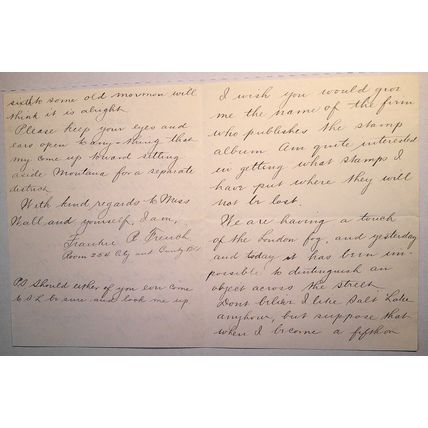 I wish you would give
me the name of the firm
who publishes the stamp
album. Am quite interested
in getting what stamps I
have put where they will
not be lost.
We are having a touch
of the London fog, and yesterday
and today it has been im-
possible to distinguish an
object across the street.
Dont believe I like Salt Lake
anyhow, but suppose that
when I become a fifth or
sixth to some old mormon will
think it is alright.
Please keep your eyes and
ears open to any-thing that
may come up toward setting
aside Montana for a separate
district.
With kind regards to Miss
Wall and yourself, I am,
Frankie P. French
Room 234 City and County Bld.
P.S. Should either of you ever come
to S L be sure and look me up